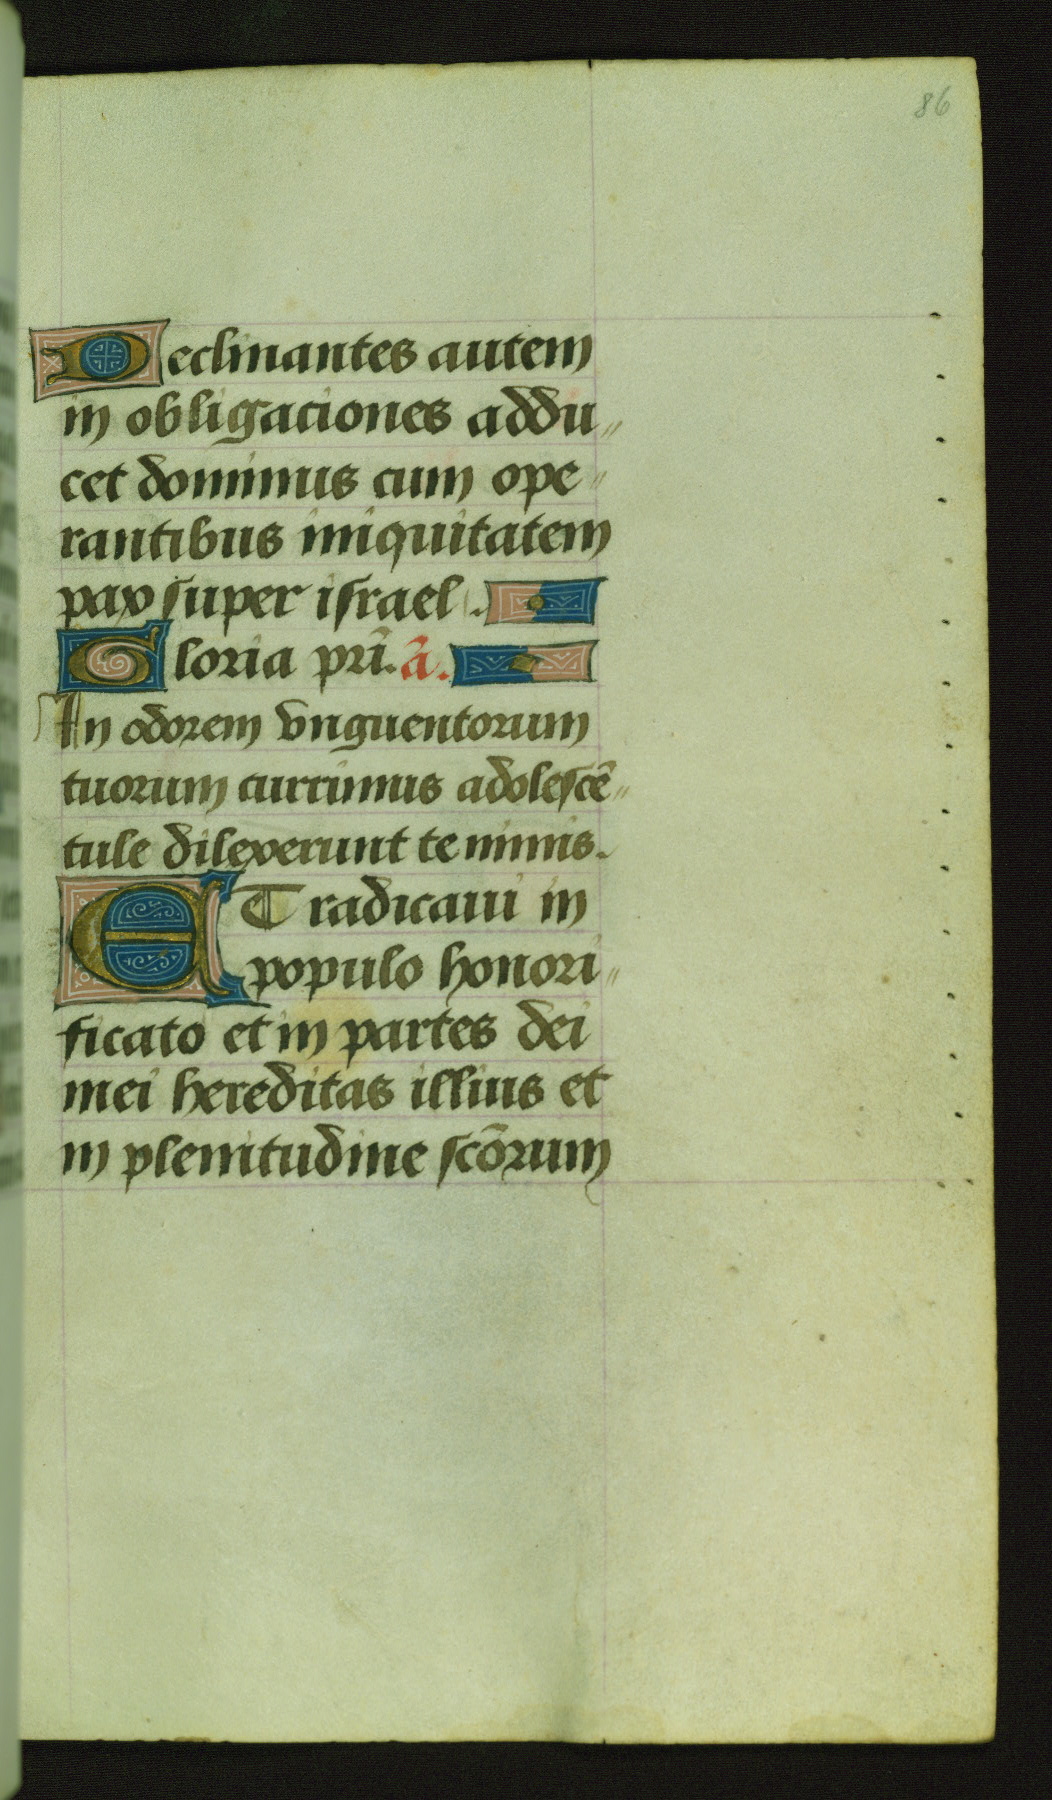 86
Declinantes autem
in obligaciones addu〃
cet dominus cum ope〃
rantibus iniquitatem
pax super israel .
Gloria pr̄i. ā.
In odorem vnguentorum
tuorum currimus adolescē〃
tule dilexerunt te nimis.
ET radicaui in
populo honori〃
ficato et in partes dei
mei hereditas illius et
in plenitudine scōrum